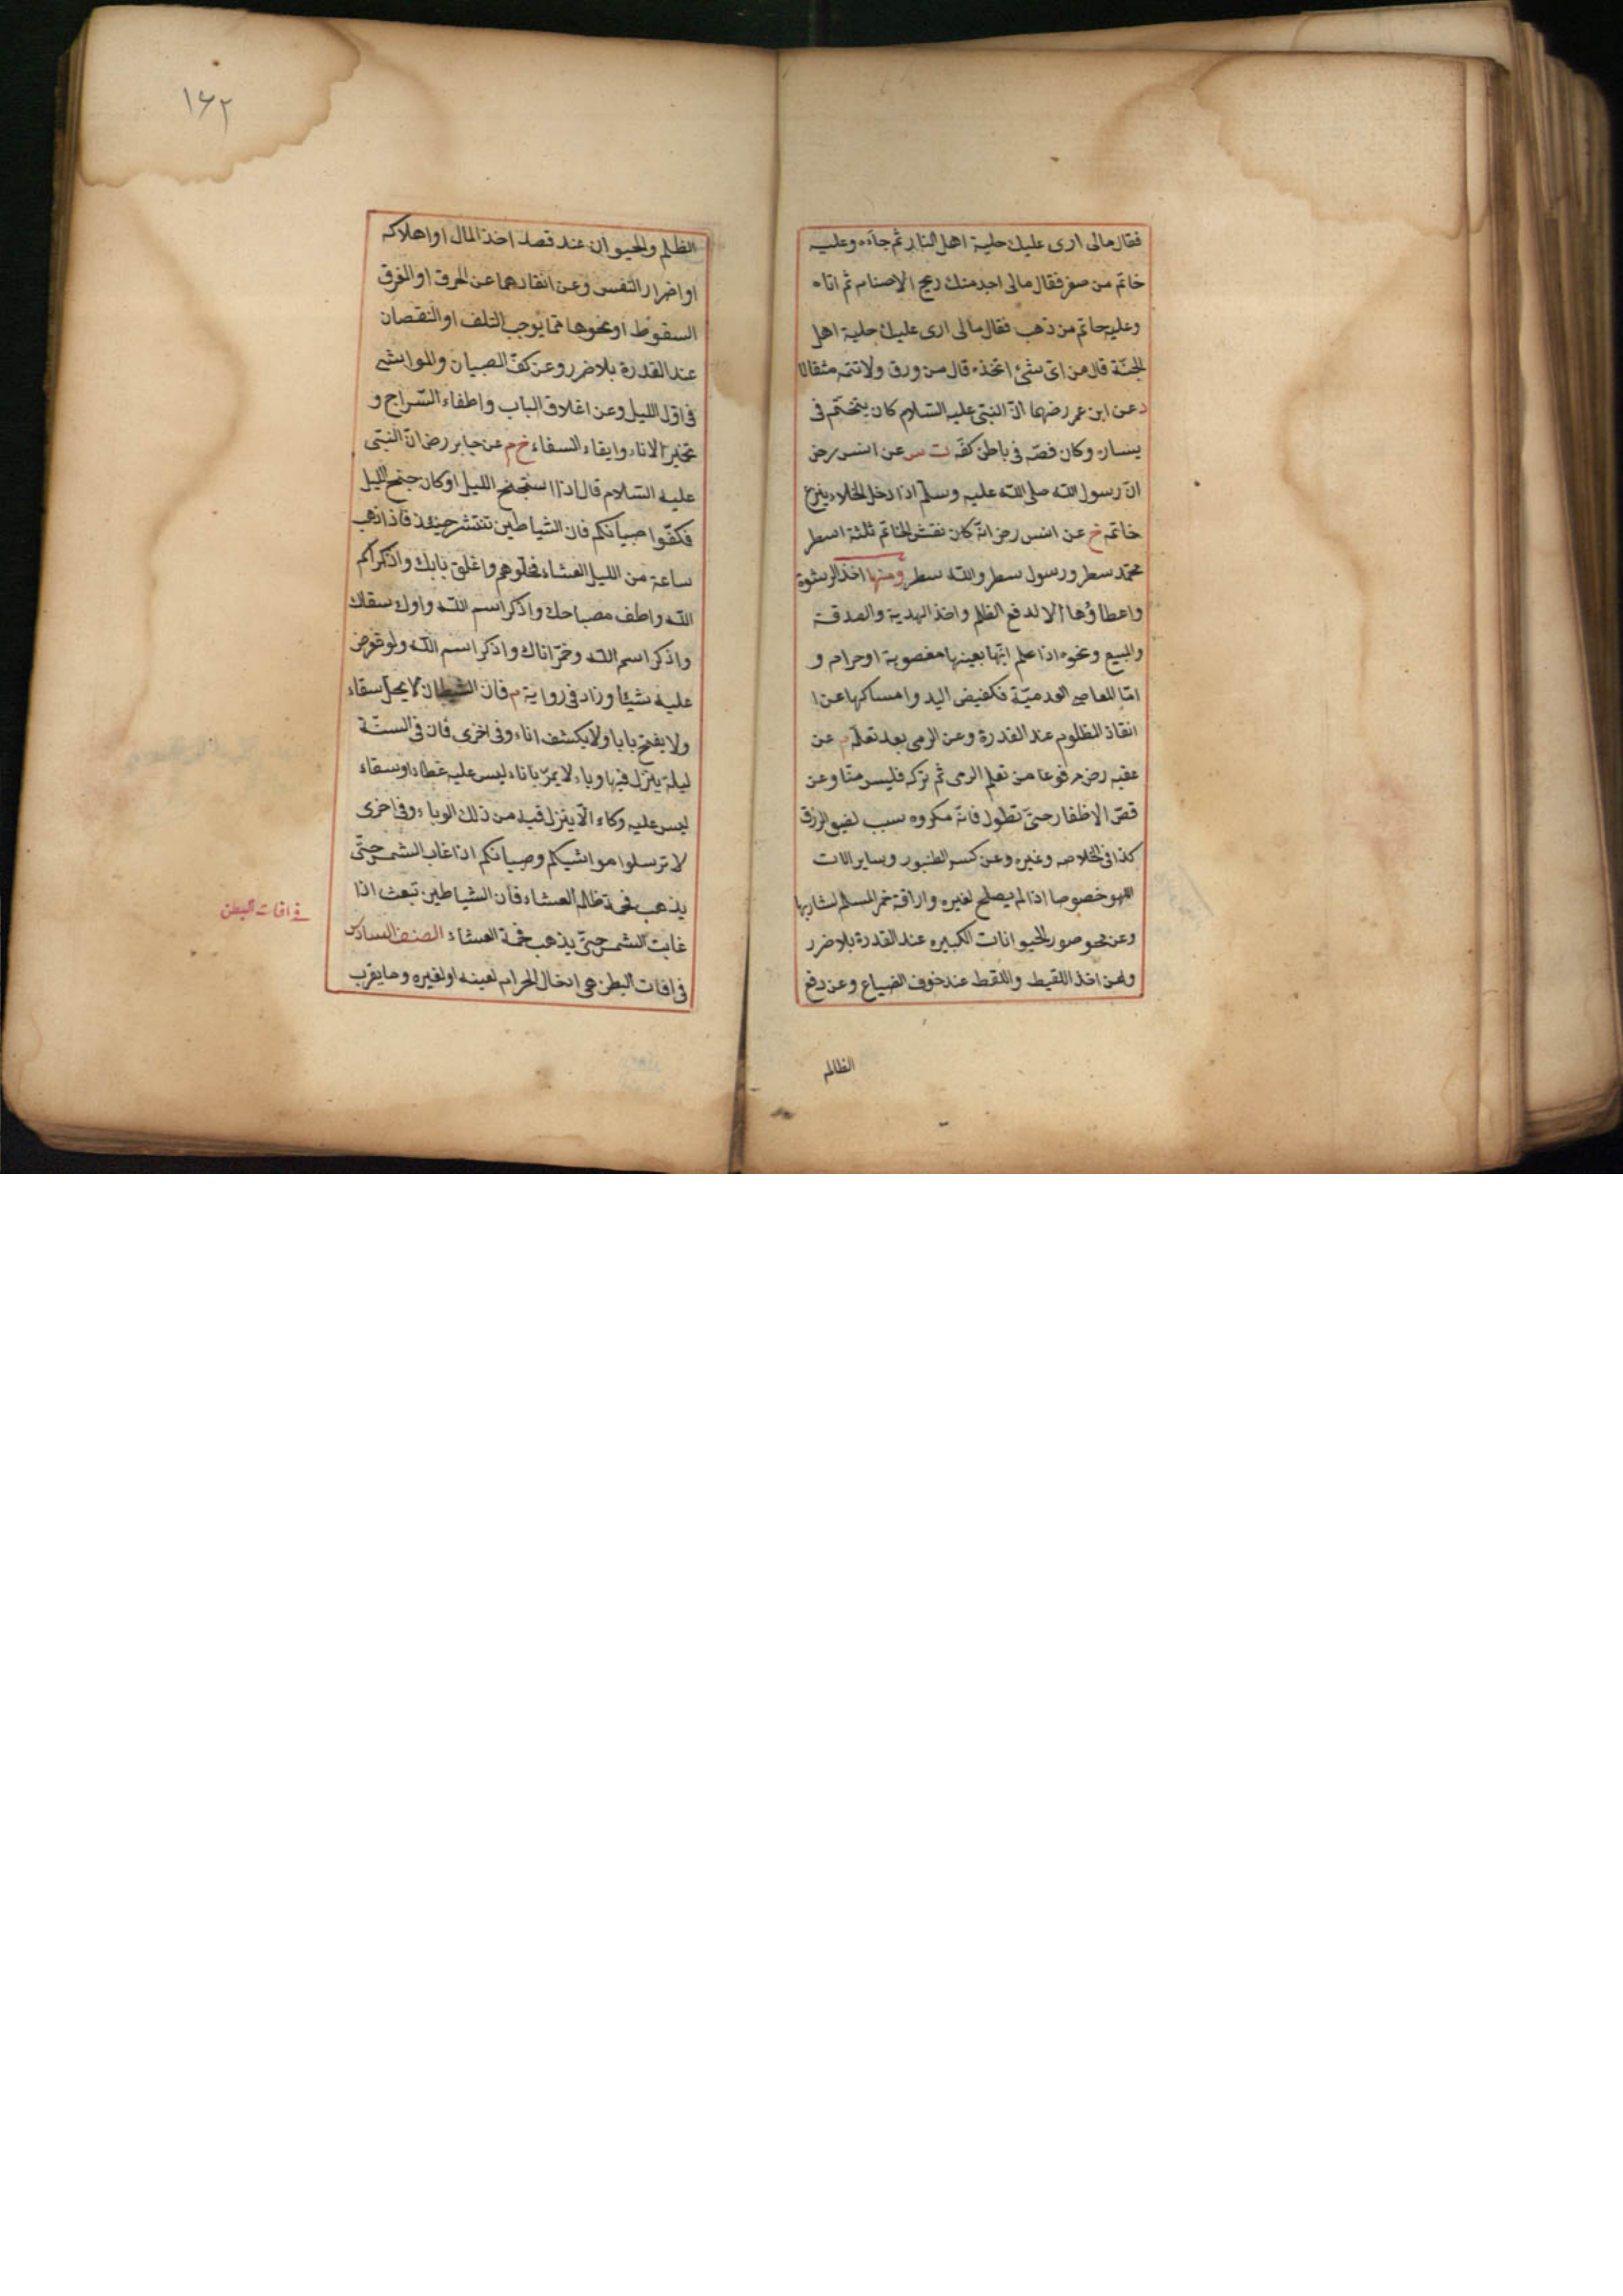 فقال مالى ارى عليك حلية اهل النار ثم جاءه وعليه
خاتم من صفر فقال مالى اجد منك ريح الاصنام ثم اتاه
وعليه خاتم من ذهب فقال مالى ارى عليك حلية اهل
الجنة قال من اى شئ اتخذه قال من ورق ولا تتمه مثقالا
د عن ابن عمر رضهما ان النبى عليه السلام كان يتختم فى
يساره وكان فصه فى باطن كفه ت س عن انس رض
ان رسول الله صلى الله عليه وسلم اذا دخل الخلاء ينزع
خاتمه خ عن انس رض انه كان نقش الخاتم ثلثة اسطر
محمد سطر ورسول سطر والله سطر ومنها اخذ الرشوة
واعطاؤها الا لدفع الظلم واخذ الهدية والصدقة
والمبيع ونحوه اذا علم انها بعينها مغصوبة او حرام و
اما المعاصى العدمية فكقبض اليد وامساكها عن ا
انقاذ المظلوم عند القدرة وعن الرمى بعد تعلمه م عن
عقبه رض مرفوعا من تعلم الرمى ثم تركه فليس منا وعن
قص الاظفار حتى تطول فانه مكروه سبب لضيق الرزق
كذا فى الخلاصه وغيره وعن كسر الطنبور وساير الات
اللهو خصوصا اذا لم يصلح لغيره واراقة خمر المسلم لشاربها
وعن محو صور الحيوانات الكبيره عند القدرة بلا ضرر
وعن اخذ اللقيط واللقط عند خوف الضياع وعن دفع
الظالم
١٦٢
الظلم والحيوان عند قصد اخذ المال او اهلاكه
او اضرار النفس وعن انقاذهما عن الحرق او الغرق
السقوط او نحوها مما يوجب التلف او النقصان
عند القدرة بلا ضرر وعن كف الصبيان والمواشى
فى اول الليل وعن اغلاق الباب واطفاء السراج و
تخمير الاناء وايقاء السقاء خ م عن جابر رض ان النبى
عليه السلام قال اذا استجنح الليل او كان جنح الليل
فكفوا صبيانكم فان الشياطين تنتشر حينئذ فاذا ذهب
ساعة من الليل العشاء فخلوهم واغلق بابك واذكر اسم
الله واطف مصباحك واذكر اسم الله واوك سقاك
واذكر اسم الله وخمر اناك واذكر اسم الله ولو تعرض
عليه شيئا وزاد فى رواية م فان الشيطان لا يحل سقاء
ولا يفتح بابا ولا يكشف اناء وفى اخرى فان فى السنة
ليلة ينزل فيها وباء لا يمر باناء ليس عليه غطاء او سقاء
ليس عليه وكاء الا ينزل فيه من ذلك الوباء وفى اخرى
لا ترسلوا مواشيكم وصبيانكم اذا غاب الشمس حتى
يذهب فحمة ظالم العشاء فان الشياطين تبعث اذا
غابت الشمس حتى يذهب فحمة العشاء الصنف السادس
فى افات البطن هى ادخال الحرام لعينه او لغيره وما يقرب
فى افات البطن